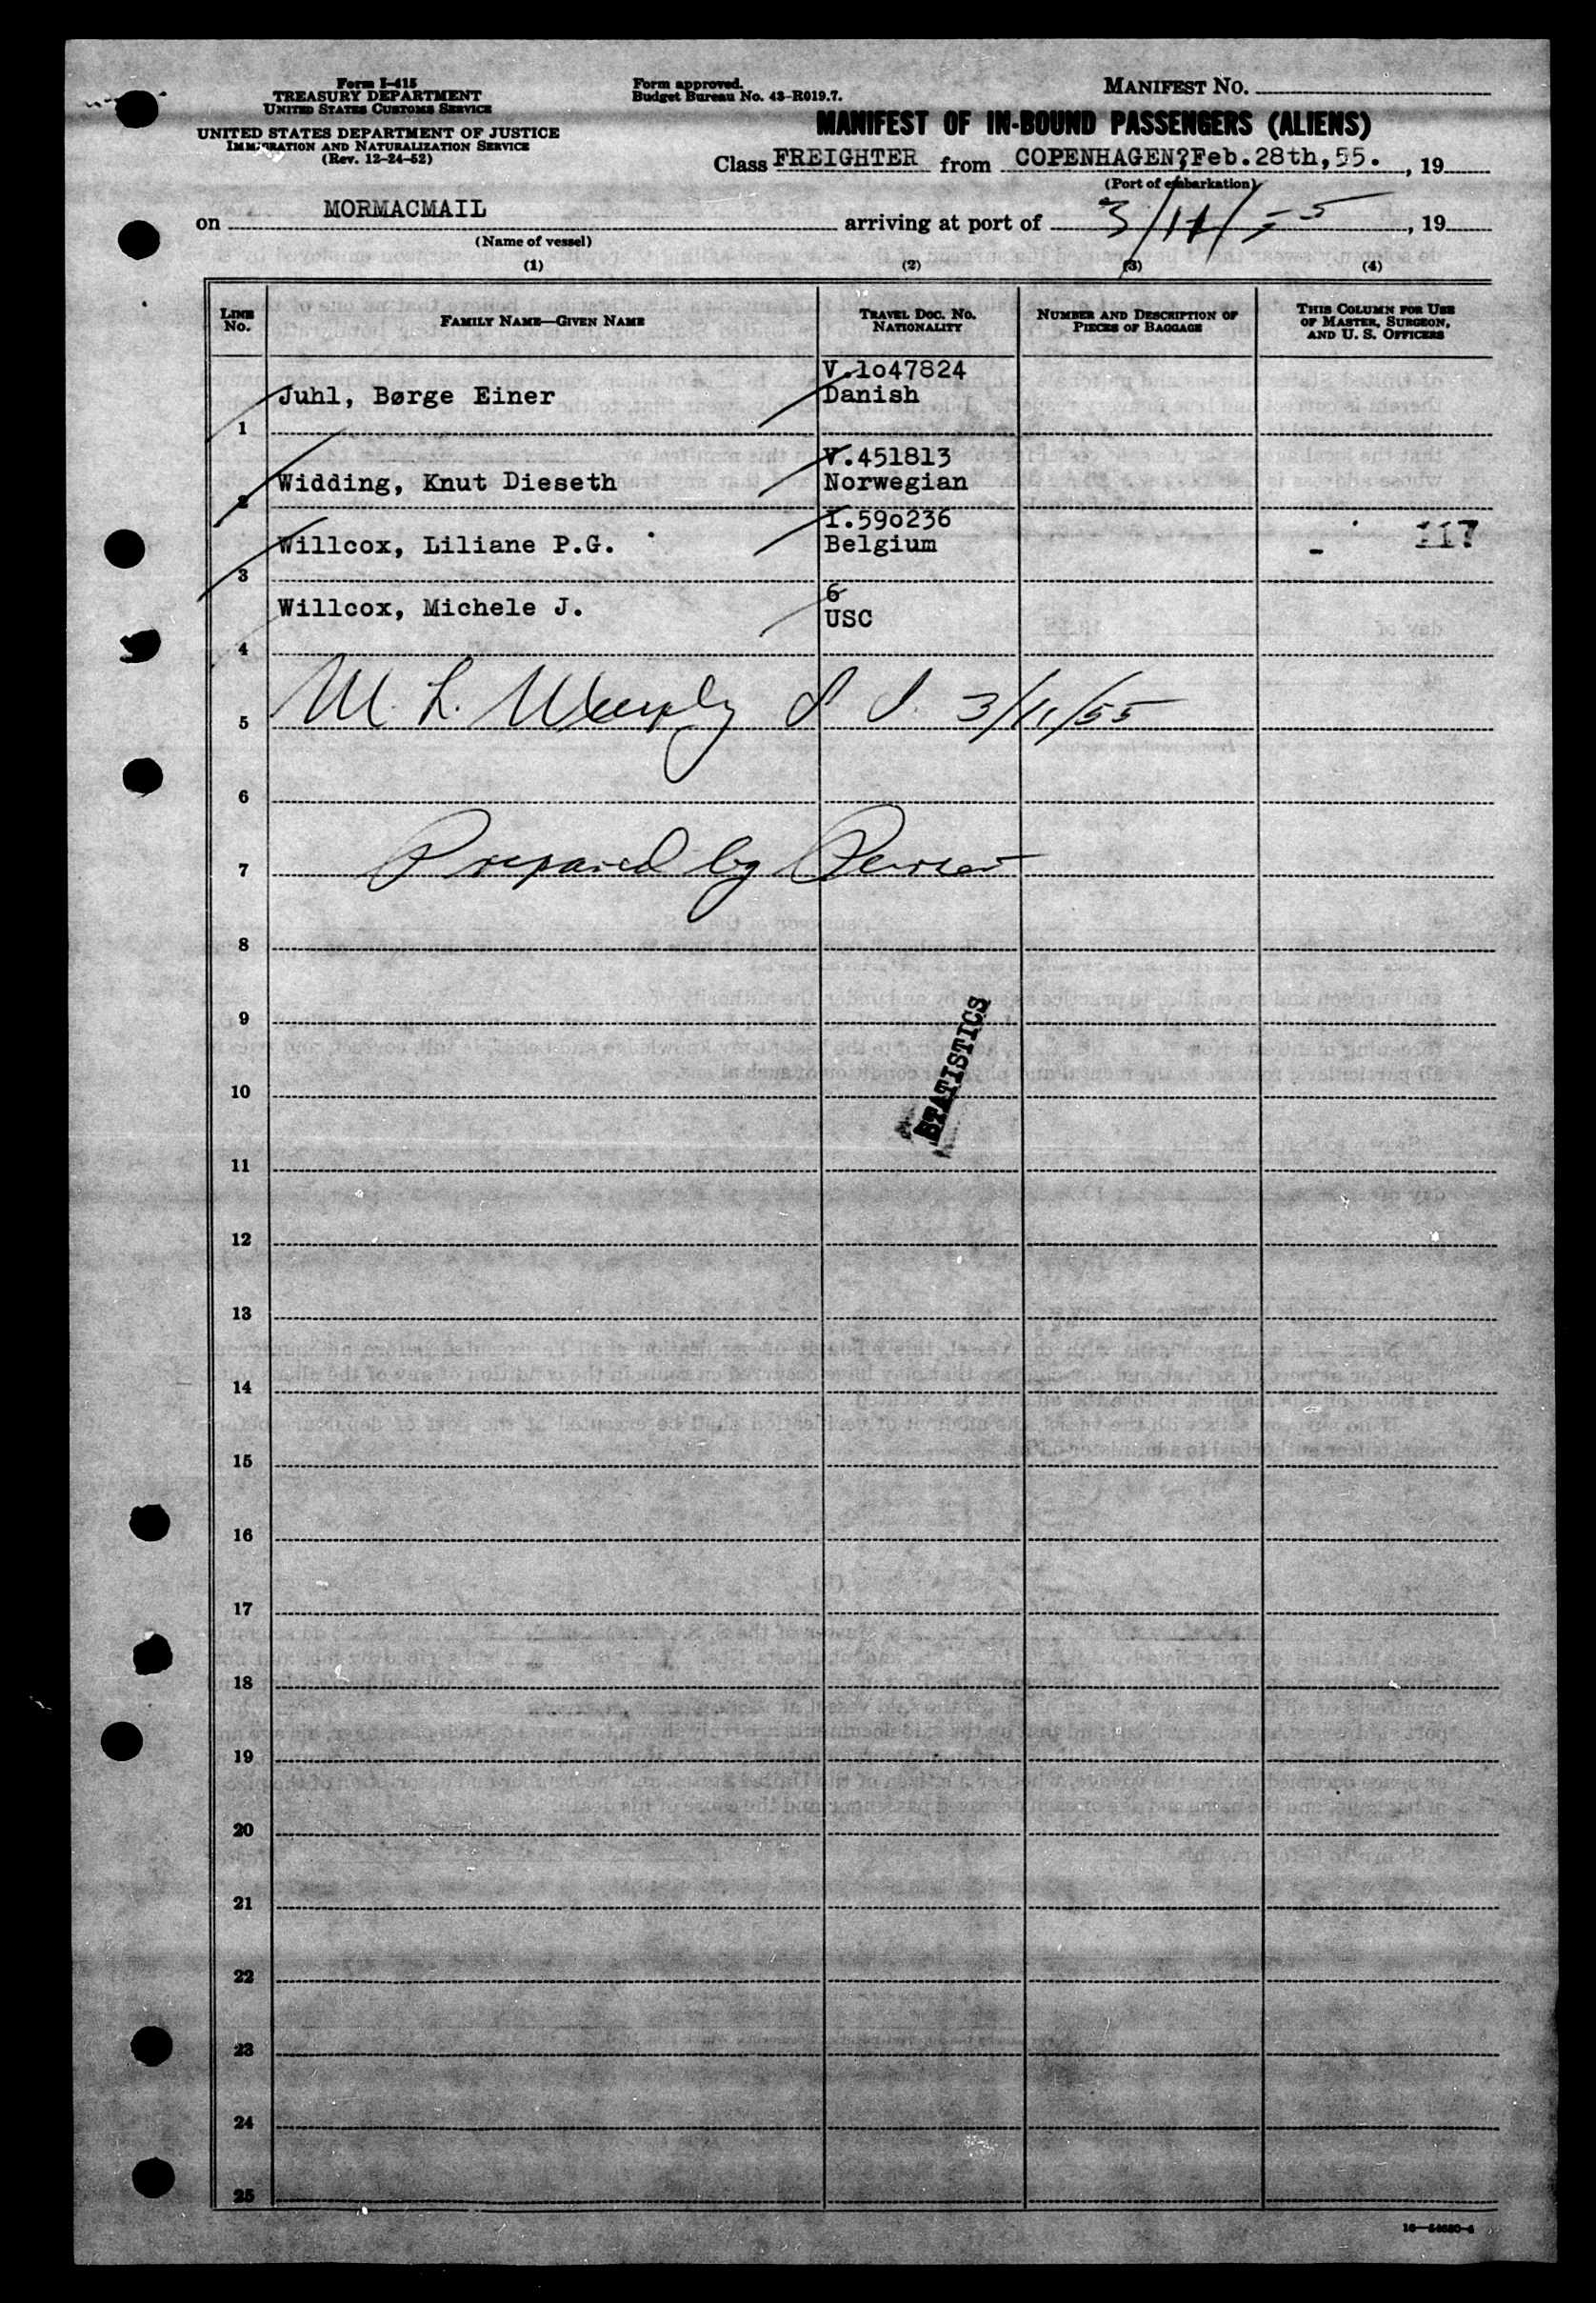 Form I-415
TREASURY DEPARTMENT
UNITED STATES CUSTOMS SERVICE
UNITED STATES DEPARTMENT OF JUSTICE
IMMIGRATION AND NATURALIZATION SERVICE
(Rev. 12-24-52)
Form approved.
Budget Bureau No. 43-R019.7.
MANIFEST NO.
MANIFEST OF IN-BOUND PASSENGERS (ALIENS)
Class FREIGHTER from COPENHAGEN?Feb.28th,55. , 19
(Port of embarkation)
on MORMACMAIL arriving at port of 3/11/55 , 19
(Name of vessel)
(1) (2) (3) (4)
LINE No. FAMILY NAME—GIVEN NAME TRAVEL DOC. NO. NATIONALITY NUMBER AND DESCRIPTION OF PIECES OF BAGGAGE THIS COLUMN FOR USE OF MASTER, SURGEON, AND U. S. OFFICERS
V.1o47824
1 Juhl, Børge Einer Danish
V.451813
2 Widding, Knut Dieseth Norwegian
I.59o236
3 Willcox, Liliane P.G. Belgium - 117
6
4 Willcox, Michele J. USC
5 M. L. Murphy 3/11/55
6
7 Prepared by Purser
8
9
STATISTICS
10
11
12
13
14
15
16
17
18
19
20
21
22
23
24
25